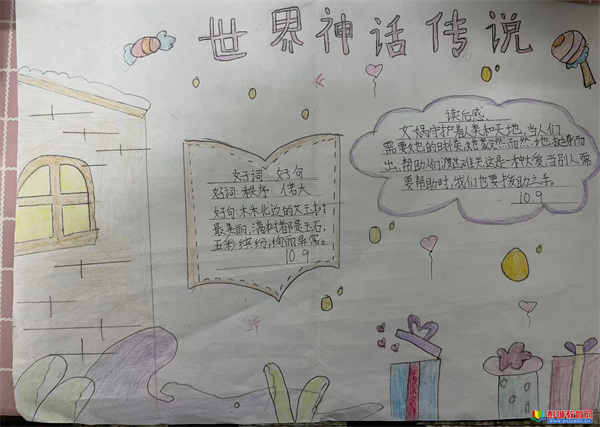 世界神话传说
好词 好句
好词:秩序 偌大
好句:木禾北边的
最美丽,满树都是玉石,
五彩缤纷,绚丽异常。
10.9
读后感
女娲守护着人类和天地,当人们
需要她的时候,她毅然而然地挺身而
出,帮助人们渡过难关这是一种大爱,当别人需
要帮助时,我们也要援助之手。
10.9